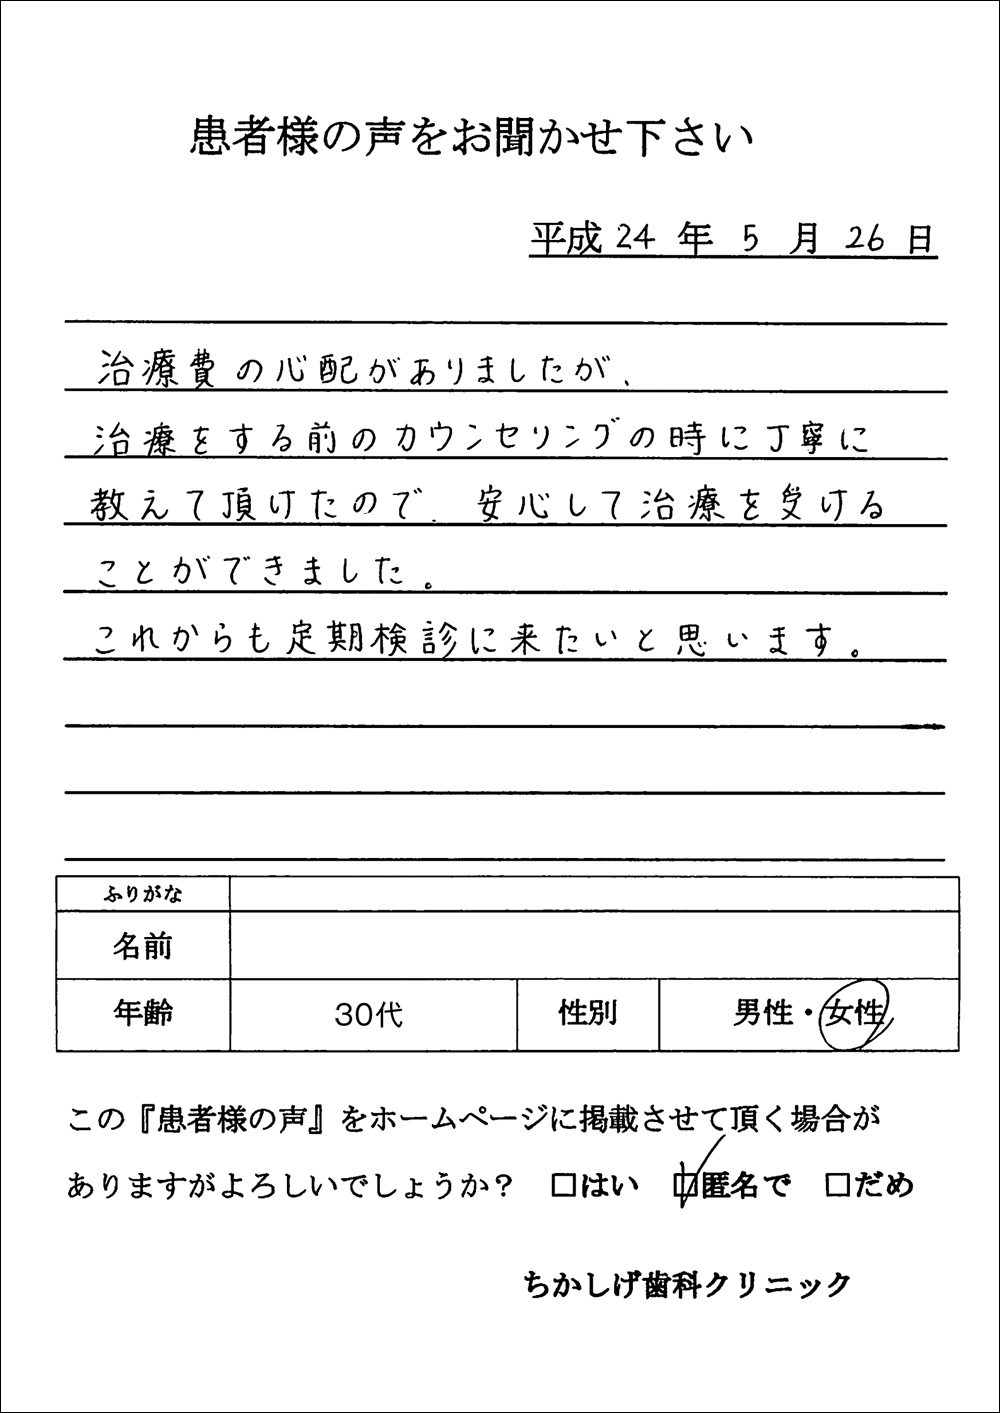 患者様の声をお聞かせ下さい
平成 24 年 5 月 26 日
治療費の心配がありましたが、
治療をする前のカウンセリングの時に丁寧に
教えて頂けたので、安心して治療を受ける
ことができました。
これからも定期検診に来たいと思います。
ふりがな
名前
年齢 30代 性別 男性・女性
この『患者様の声』をホームページに掲載させて頂く場合が
ありますがよろしいでしょうか? □はい ☑匿名で □だめ
ちかしげ歯科クリニック